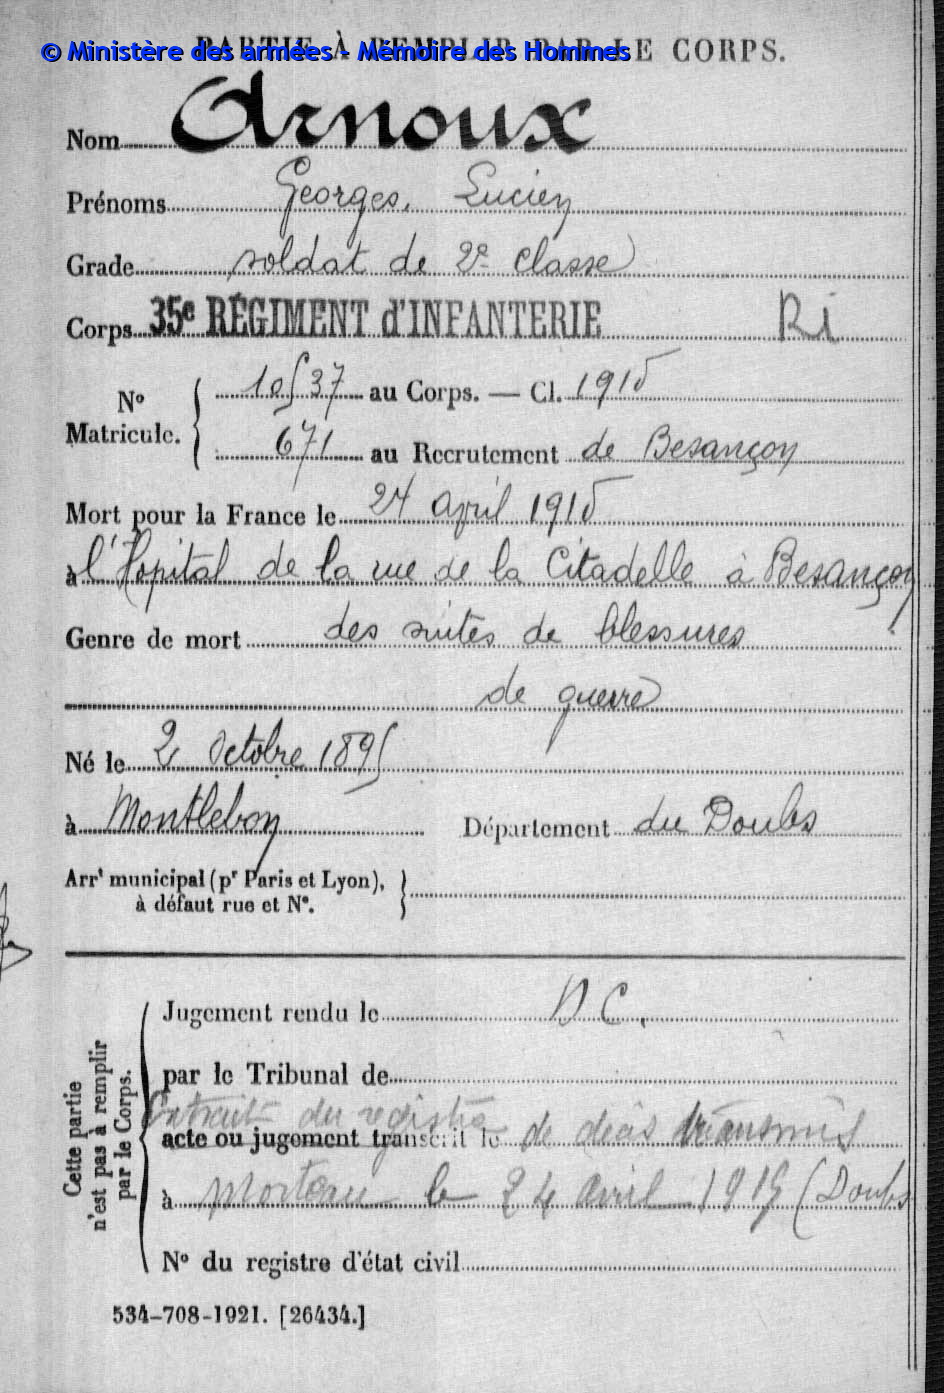 PARTIE À REMPLIR PAR LE CORPS.
© Ministère des armées - Mémoire des Hommes
Nom Arnoux
Prénoms Georges, Lucien
Grade soldat de 2e classe
Corps 35e RÉGIMENT d'INFANTERIE Ri
No Matricule. 10537 au Corps. — Cl. 1915
671 au Recrutement de Besançon
Mort pour la France le 24 avril 1915
à l'Hopital de la rue de la Citadelle à Besançon
Genre de mort des suites de blessures
de guerre
Né le 2 Octobre 1895
à Montlebon Département du Doubs
Arrt municipal (pr Paris et Lyon),
à défaut rue et No.
Cette partie
n'est pas à remplir
par le Corps.
Jugement rendu le D C.
par le Tribunal de
Extrait du registre
acte ou jugement transcrit le de décès transmis
à Morteau le 24 avril 1915 (Doubs
No du registre d'état civil
534-708-1921. [26434.]